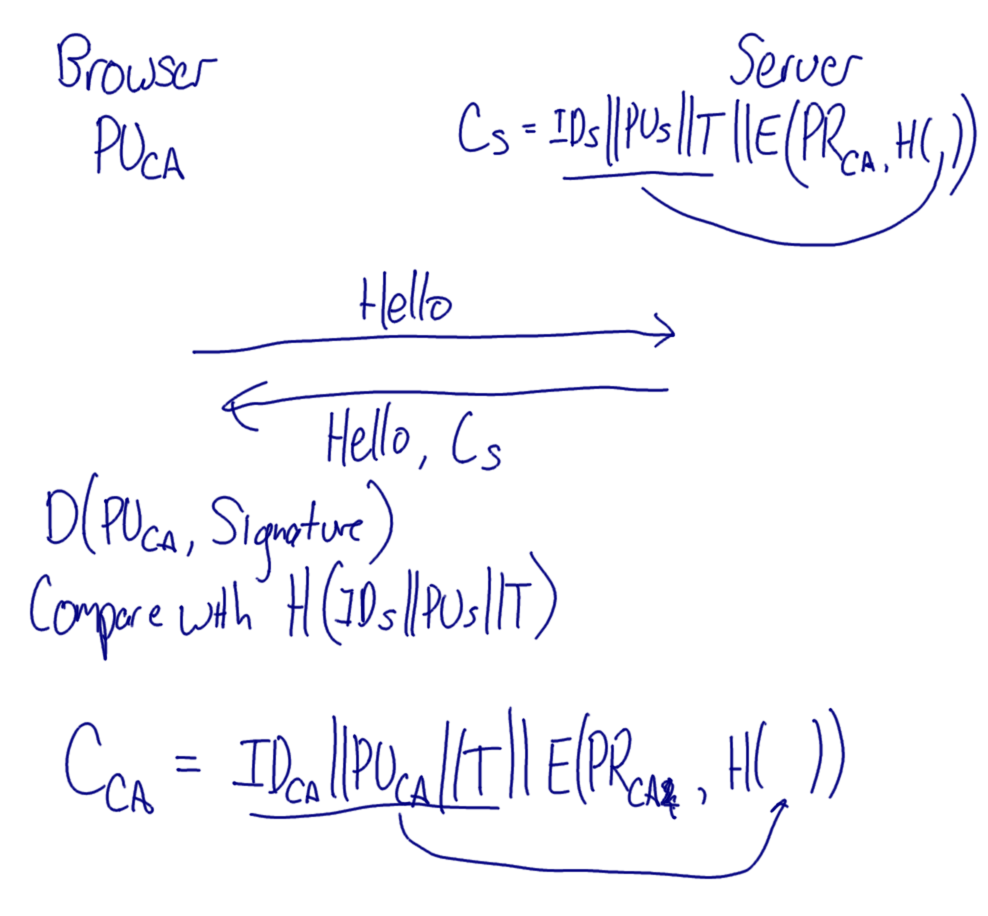 Browser
Server
PU_CA
C_S = ID_S||PU_S||T||E(PR_CA, H(,))
Hello
Hello, C_S
D(PU_CA, Signature)
Compare with H(ID_S||PU_S||T)
C_CA = ID_CA||PU_CA||T||E(PR_CA, H( ))